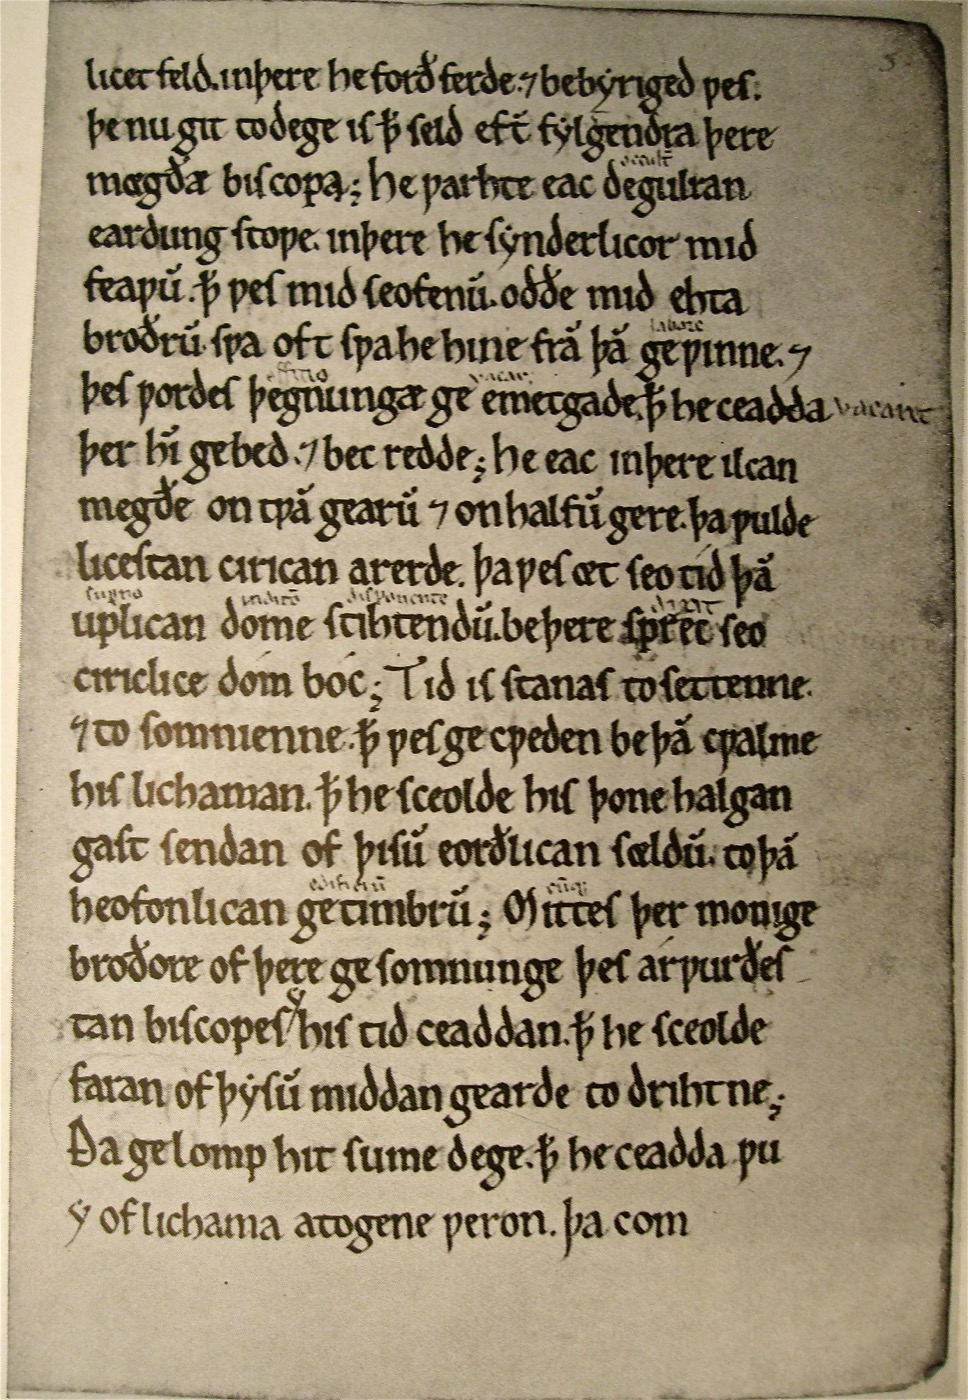 licet feld. inþere he forð ferde. ⁊ bebẏriged ƿes.
þe nu git to dege is ꝥ seld eft̄ fẏlgendra þere
mœgðæ biscopa; he ƿarhte eac degulran
occult̄
eardung stoƿe. inþere he sẏnderlicor mid
feaƿū. ꝥ ƿes mid seofenū. oððe mid ehta
broðrū. sƿa oft sƿa he hine frā þā geƿinne. ⁊
labore
þes ƿordes þegnungæ ge emetgade. ꝥ he ceadda vacaret
officio vacar
þer hī gebed. ⁊ bec redde; he eac inþere ilcan
megðe on tƿā gearū ⁊ on halfū gere. þa ƿulde
licestan cirican arerde. þa ƿes œt seo tíd þā
uplican dome stihtendū. be þere sprec seo
superno indito disponente dixit
ciriclice dóm bóc; Tid is stanas to settenne.
⁊ to somnienne. ꝥ ƿes ge cƿeden be þā cƿalme
his lichaman. ꝥ he sceolde his þone halgan
gast sendan of þisū eorðlican sœldū. to þā
heofonlican getimbrū; Mittes þer monige
edificiū cūq;
broðore of þere ge somnunge þes árƿurðes
tan biscopes his tid ceaddan. ꝥ he sceolde
faran of þẏsū middan gearde to drihtne;
Ða gelomp hit sume dege. ꝥ he ceadda ƿu
ẏ of lichama atogene ƿeron. þa com